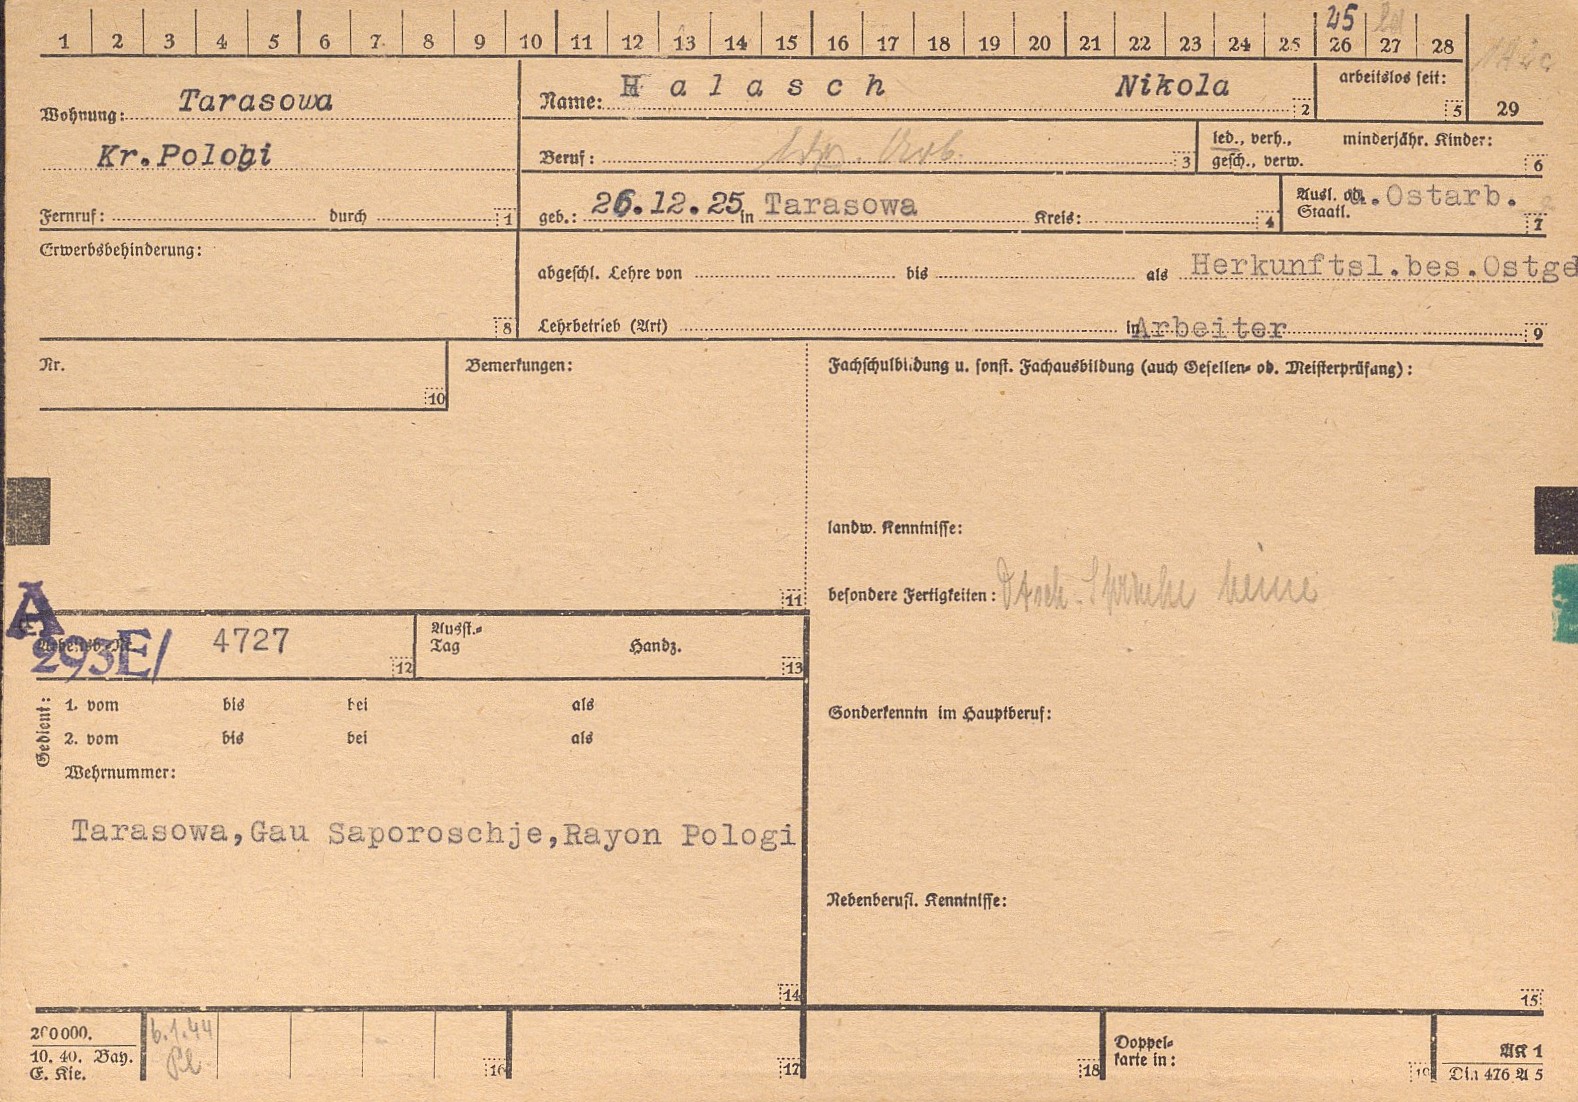 45
1 2 3 4 5 6 7 8 9 10 11 12 13 14 15 16 17 18 19 20 21 22 23 24 25 26 27 28
Wohnung: Tarasowa
Kr.Pologi
Fernruf: durch 1
Name: Halasch Nikola 2
arbeitslos seit: 5
29
Beruf: 3
led., verh., minderjähr. Kinder:
gesch., verw. 6
geb.: 26.12.25 in Tarasowa Kreis: 4
Ausl. od. a.Ostarb.
Staatl. 7
Erwerbsbehinderung:
8
abgeschl. Lehre von bis als Herkunftsl.bes.Ostge
Lehrbetrieb (Art) in Arbeiter 9
Nr.
10
Bemerkungen:
11
Fachschulbildung u. sonst. Fachausbildung (auch Gesellen- od. Meisterprüfung):
landw. Kenntnisse:
besondere Fertigkeiten: Dtsch. Sprache keine
Sonderkenntn im Hauptberuf:
Nebenberufl. Kenntnisse:
15
A
293E/ 4727
Arbeitsb.-Nr. 12
Ausst.-
Tag Handz.
13
Gedient:
1. vom bis bei als
2. vom bis bei als
Wehrnummer:
Tarasowa,Gau Saporoschje,Rayon Pologi
14
200000.
10. 40. Bay.
E. Kie.
6.1.44
16
17
18
Doppel-
karte in:
19
AK 1
Din 476 A 5